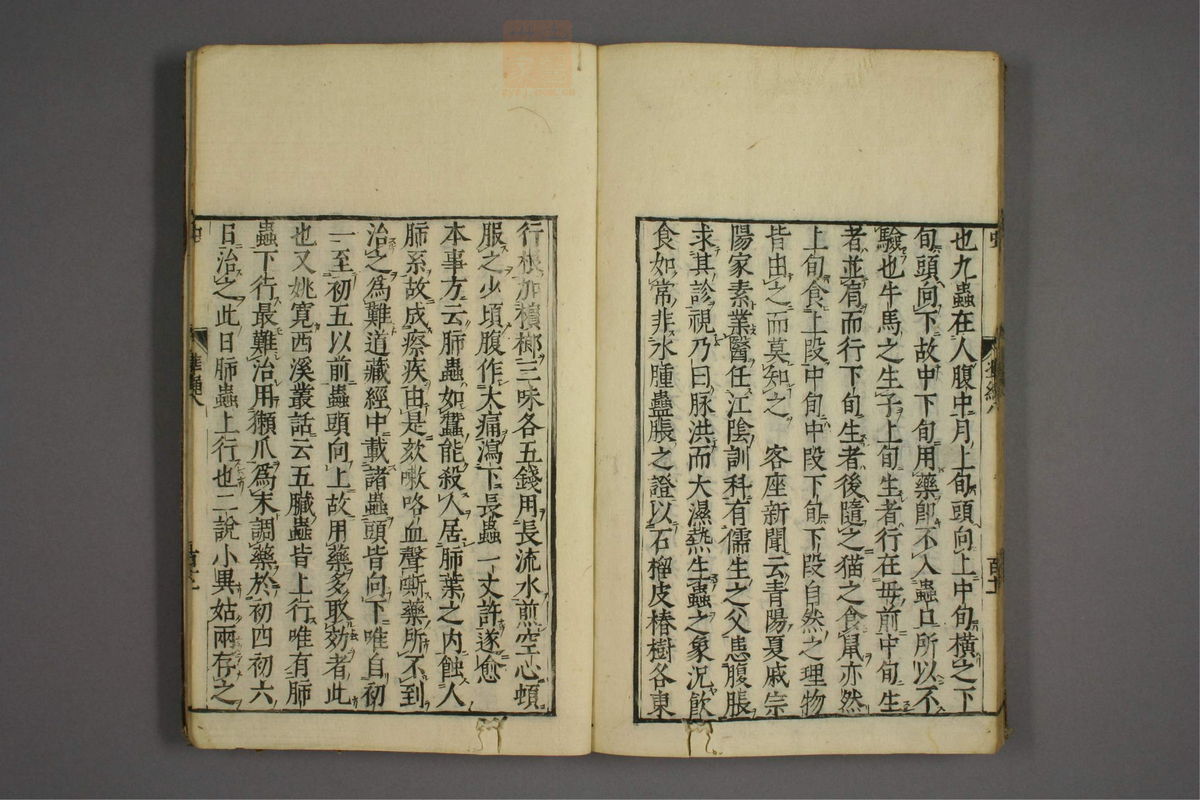 也九蟲在人腹中月上旬頭向上中旬橫之下
旬頭向下故中下旬用藥即不入蟲口所以不
驗也牛馬之生子上旬生者行在毋前中旬生
者並肩而行下旬生者後隨之猫之食鼠亦然
上旬食上段中旬中段下旬下段自然之理物
皆由之而莫知之 客座新聞云青陽夏戚宗
陽家素業醫任江陰訓科有儒生之父患腹脹
求其診視乃曰脉洪而大濕熱生蟲之象況飲
食如常非水腫蠱脹之證以石榴皮椿樹各東
行根加檳榔三味各五錢用長流水煎空心頓
服之少頃腹作大痛瀉下長蟲一丈許遂愈
本事方云肺蟲如蠶能殺人居肺葉之内蝕人
肺系故成瘵疾由是欬嗽咯血聲嘶藥所不到
治之為難道藏經中載諸蟲頭皆向下唯自初
一至初五以前蟲頭向上故用藥多取効者此
也又姚寛西溪叢話云五臟蟲皆上行唯有肺
蟲下行最難治用獺爪為末調藥於初四初六
日治之此日肺蟲上行也二說小異姑兩存之